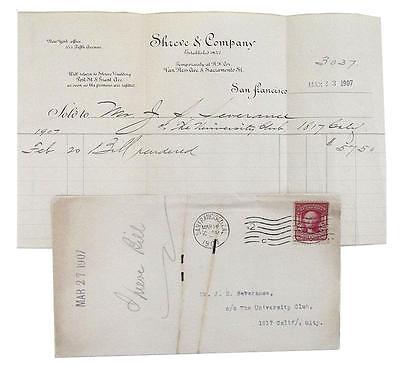 New York office.
Fifth Avenue
Shreve & Company
Established 1852
Temporarily at N.W. Cor
Van Ness Ave & Sacramento St.
3037
MAR 23 1907
Will return to Shreve Building
Post St. & Grant Ave.
as soon as the premises are refitted.
San Francisco
Sold to Mr. J. S. Severance
% The University Club 1817 Calif
1907
Feb 20 Bill rendered $ 57.50
SAN FRANCISCO, CAL.
MAR
2
C
Shreve Bill
MAR 27 1907
Mr. J. S. Severance,
c/o The University Club,
1817 Calif/, City.